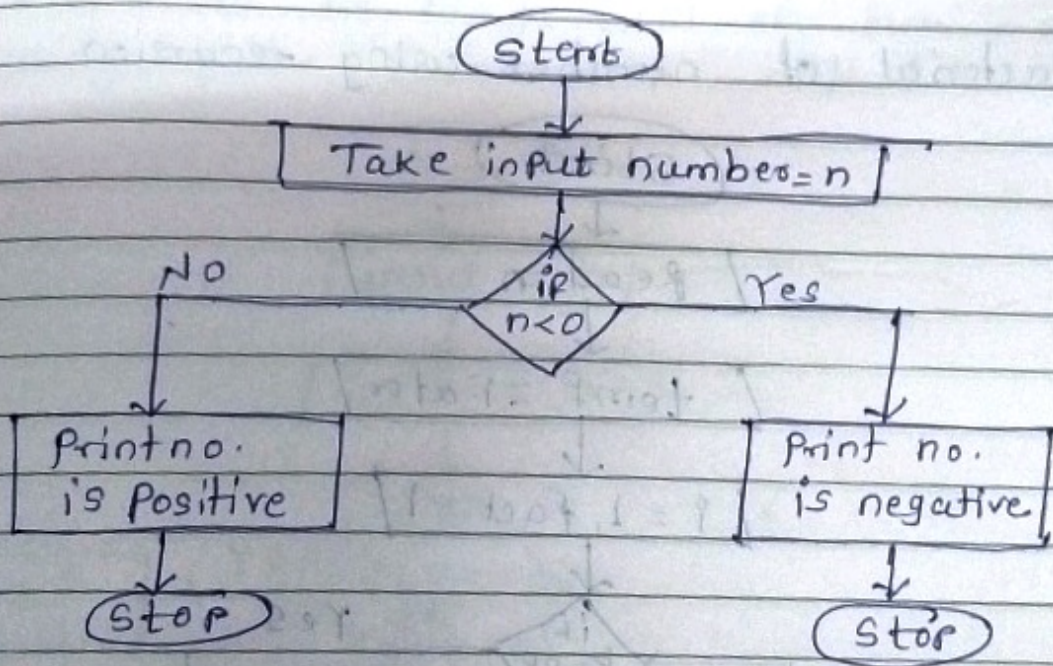 Start
Take input number = n
No
if
Yes
n<0
Print no.
is Positive
Print no.
is negative
Stop
Stop